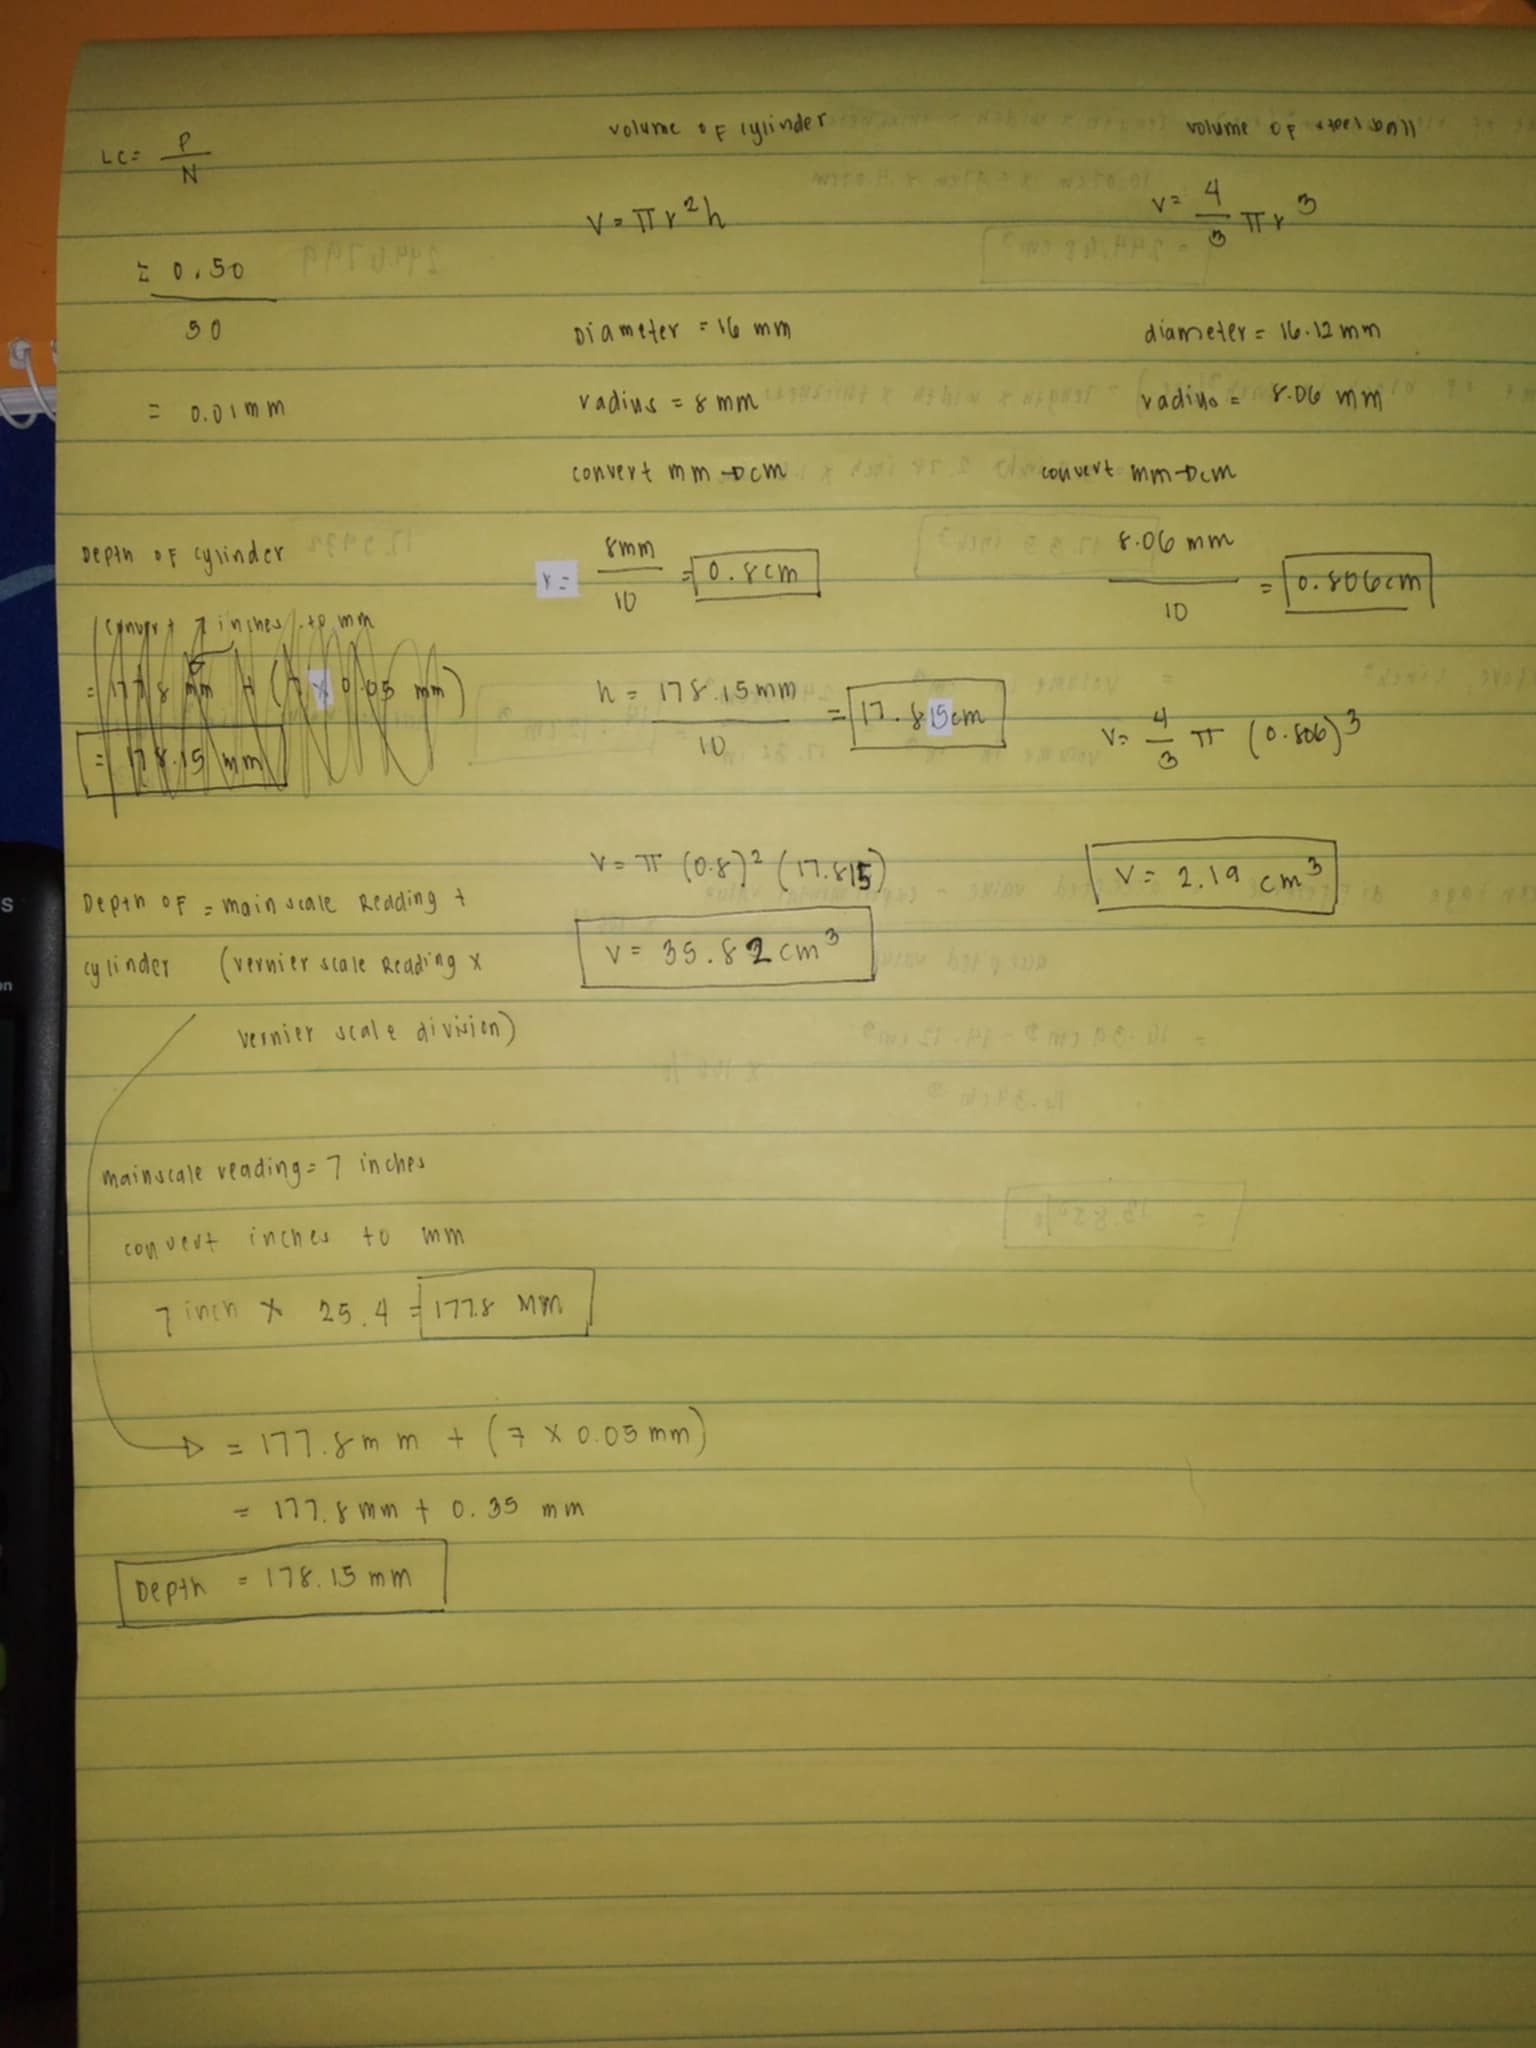 LC = P
N
= 0.50
50
= 0.01 mm
Depth of cylinder
convert 7 inches to mm
= 177.8 mm + (7 x 0.05 mm)
= 178.15 mm
Depth of = main scale Reading +
cylinder (vernier scale Reading x
vernier scale division)
mainscale reading = 7 inches
convert inches to mm
7 inch x 25.4 = 177.8 mm
= 177.8 mm + (7 x 0.05 mm)
= 177.8 mm + 0.35 mm
Depth = 178.15 mm
volume of cylinder
V = πr²h
Diameter = 16 mm
radius = 8 mm
convert mm → cm
r = 8mm = 0.8cm
10
h = 178.15mm = 17.815cm
10
V = π (0.8)² (17.815)
V = 35.82 cm³
volume of steel ball
V = 4 πr³
3
diameter = 16.12 mm
radius = 8.06 mm
convert mm → cm
8.06 mm = 0.806cm
10
V = 4 π (0.806)³
3
V = 2.19 cm³